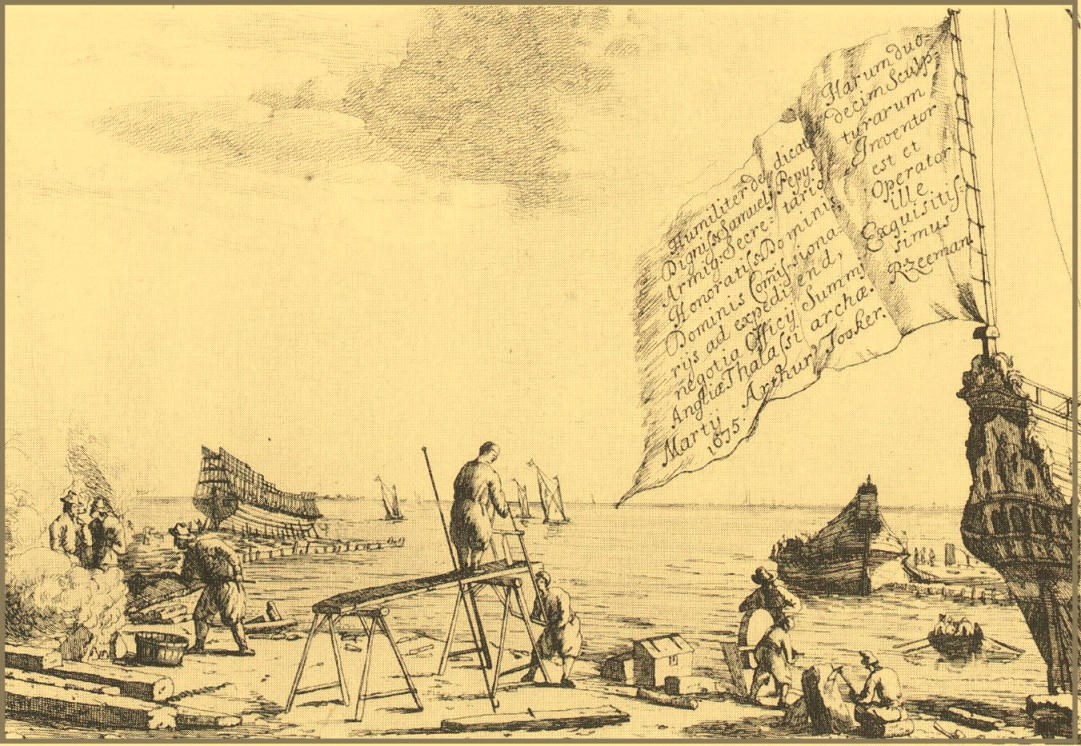 Harum duo-
decim Sculp-
turarum
Inventor
est et
Operator
ille
Exquisitiſ-
simus
RZeeman
Humiliter de dicat
Digniſs Samueli Pepys
Armig: Secre- tario
Honoratiſs Dominis,
Dominis Comiſ-siona-
rijs ad expedi end,
negotia Officij Summi
Angliæ Thalaſsi archæ.
Martij Arthur Tooker.
1675.